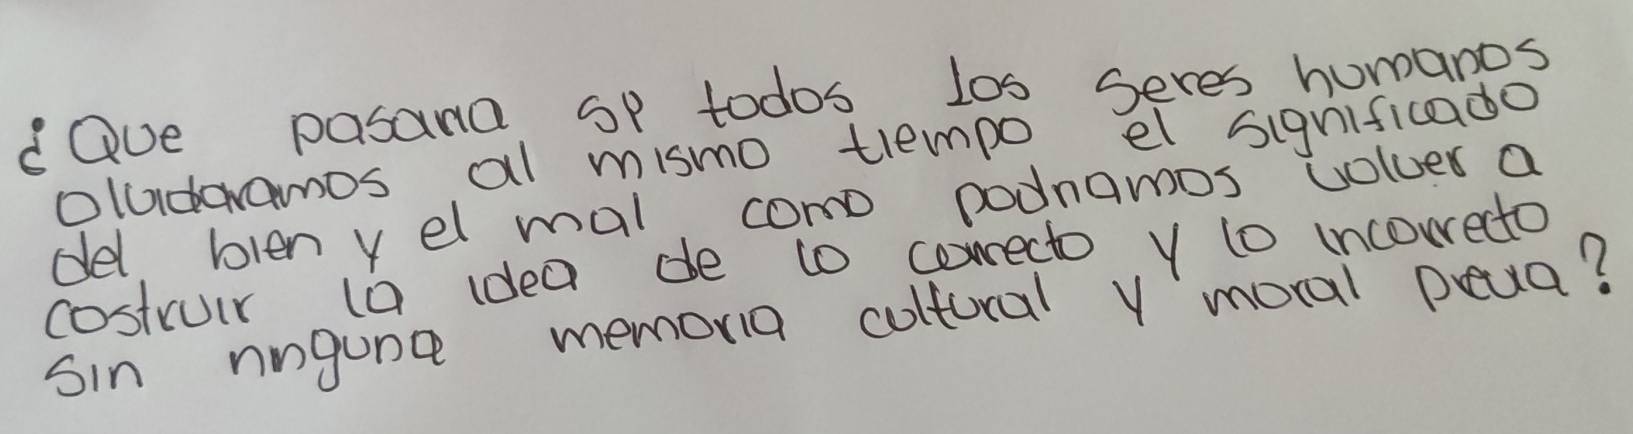 ¿Que pasaria si todos los seres humanos
olvidaramos al mismo tiempo el significado
del bien y el mal como podriamos volver a
costruir la idea de lo correcto y lo incorrecto
sin ninguna memoria cultural y moral previa?